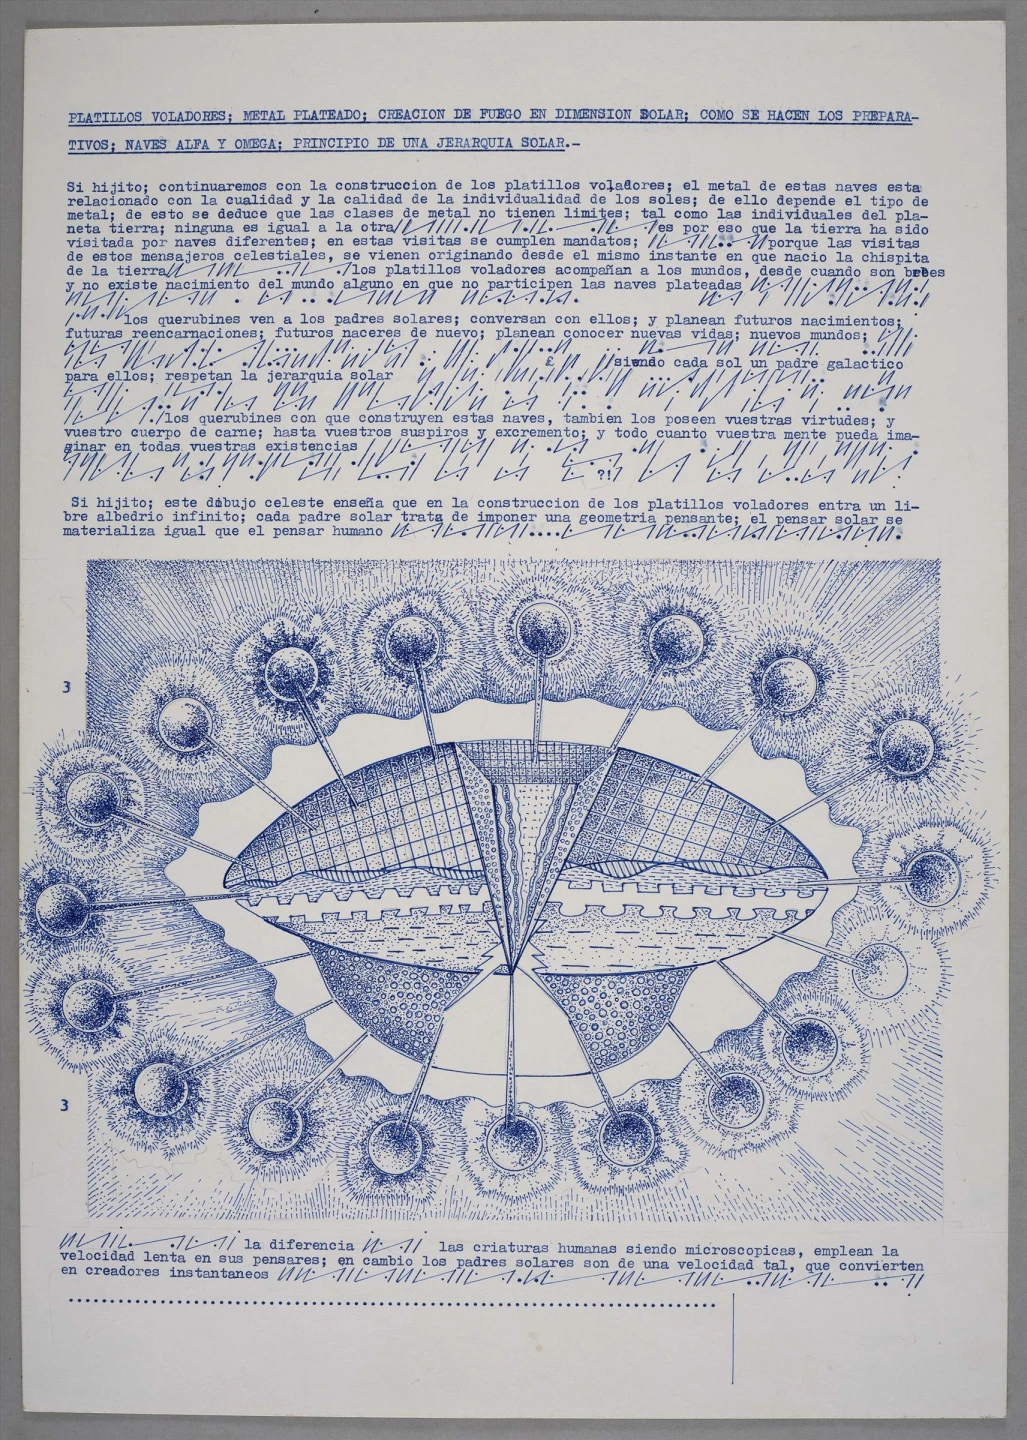 PLATILLOS VOLADORES; METAL PLATEADO; CREACION DE FUEGO EN DIMENSION SOLAR; COMO SE HACEN LOS PREPARA-
TIVOS; NAVES ALFA Y OMEGA; PRINCIPIO DE UNA JERARQUIA SOLAR.-
Si hijito; continuaremos con la construccion de los platillos voladores; el metal de estas naves esta
relacionado con la cualidad y la calidad de la individualidad de los soles; de ello depende el tipo de
metal; de esto se deduce que las clases de metal no tienen limites; tal como las individuales del pla-
neta tierra; ninguna es igual a la otra es por eso que la tierra ha sido
visitada por naves diferentes; en estas visitas se cumplen mandatos; porque las visitas
de estos mensajeros celestiales, se vienen originando desde el mismo instante en que nacio la chispita
de la tierra los platillos voladores acompañan a los mundos, desde cuando son bebes
y no existe nacimiento del mundo alguno en que no participen las naves plateadas
los querubines ven a los padres solares; conversan con ellos; y planean futuros nacimientos;
futuras reencarnaciones; futuros naceres de nuevo; planean conocer nuevas vidas; nuevos mundos;
siendo cada sol un padre galactico
para ellos; respetan la jerarquia solar
los querubines con que construyen estas naves, tambien los poseen vuestras virtudes; y
vuestro cuerpo de carne; hasta vuestros suspiros y excremento; y todo cuanto vuestra mente pueda ima-
ginar en todas vuestras existencias
?!
Si hijito; este dibujo celeste enseña que en la construccion de los platillos voladores entra un li-
bre albedrio infinito; cada padre solar trata de imponer una geometria pensante; el pensar solar se
materializa igual que el pensar humano
3
3
la diferencia las criaturas humanas siendo microscopicas, emplean la
velocidad lenta en sus pensares; en cambio los padres solares son de una velocidad tal, que convierten
en creadores instantaneos